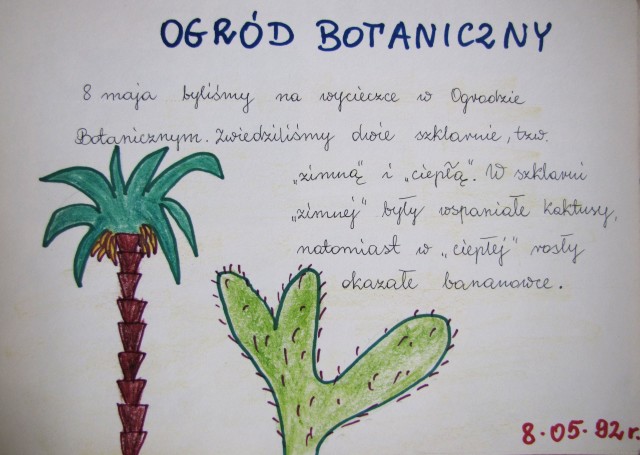 OGRÓD BOTANICZNY
8 maja byliśmy na wycieczce w Ogrodzie
Botanicznym. Zwiedziliśmy dwie szklarnie, tzw.
„zimną" i „ciepłą". W szklarni
„zimnej" były wspaniałe kaktusy,
natomiast w „ciepłej" rosły
okazałe bananowce.
8.05.92 r.